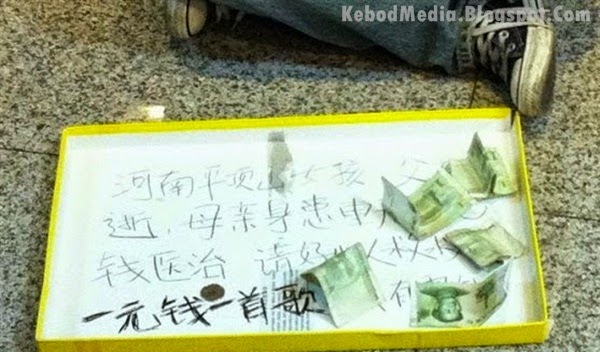 KebodMedia.Blogspot.Com
河南平顶山女孩 父
逝,母亲身患
钱医治 请好心人
一元钱一首歌
有